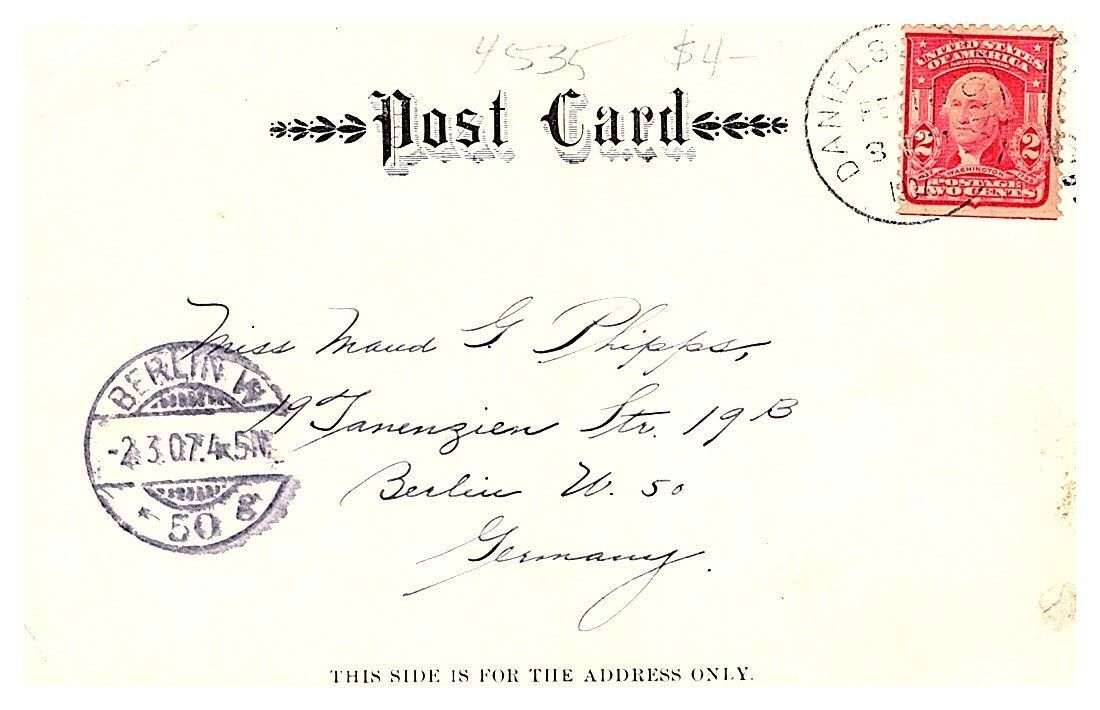 4535 $4-
Post Card
DANIELS
FE
8
190
UNITED STATES
OF AMERICA
2 2
WASHINGTON
POSTAGE
TWO CENTS
Miss Maud G. Phipps,
19 Tanenzien Str. 19 B
Berlin W. 50
Germany.
BERLIN W
-2.3.07.4-5N
* 50 g
THIS SIDE IS FOR THE ADDRESS ONLY.